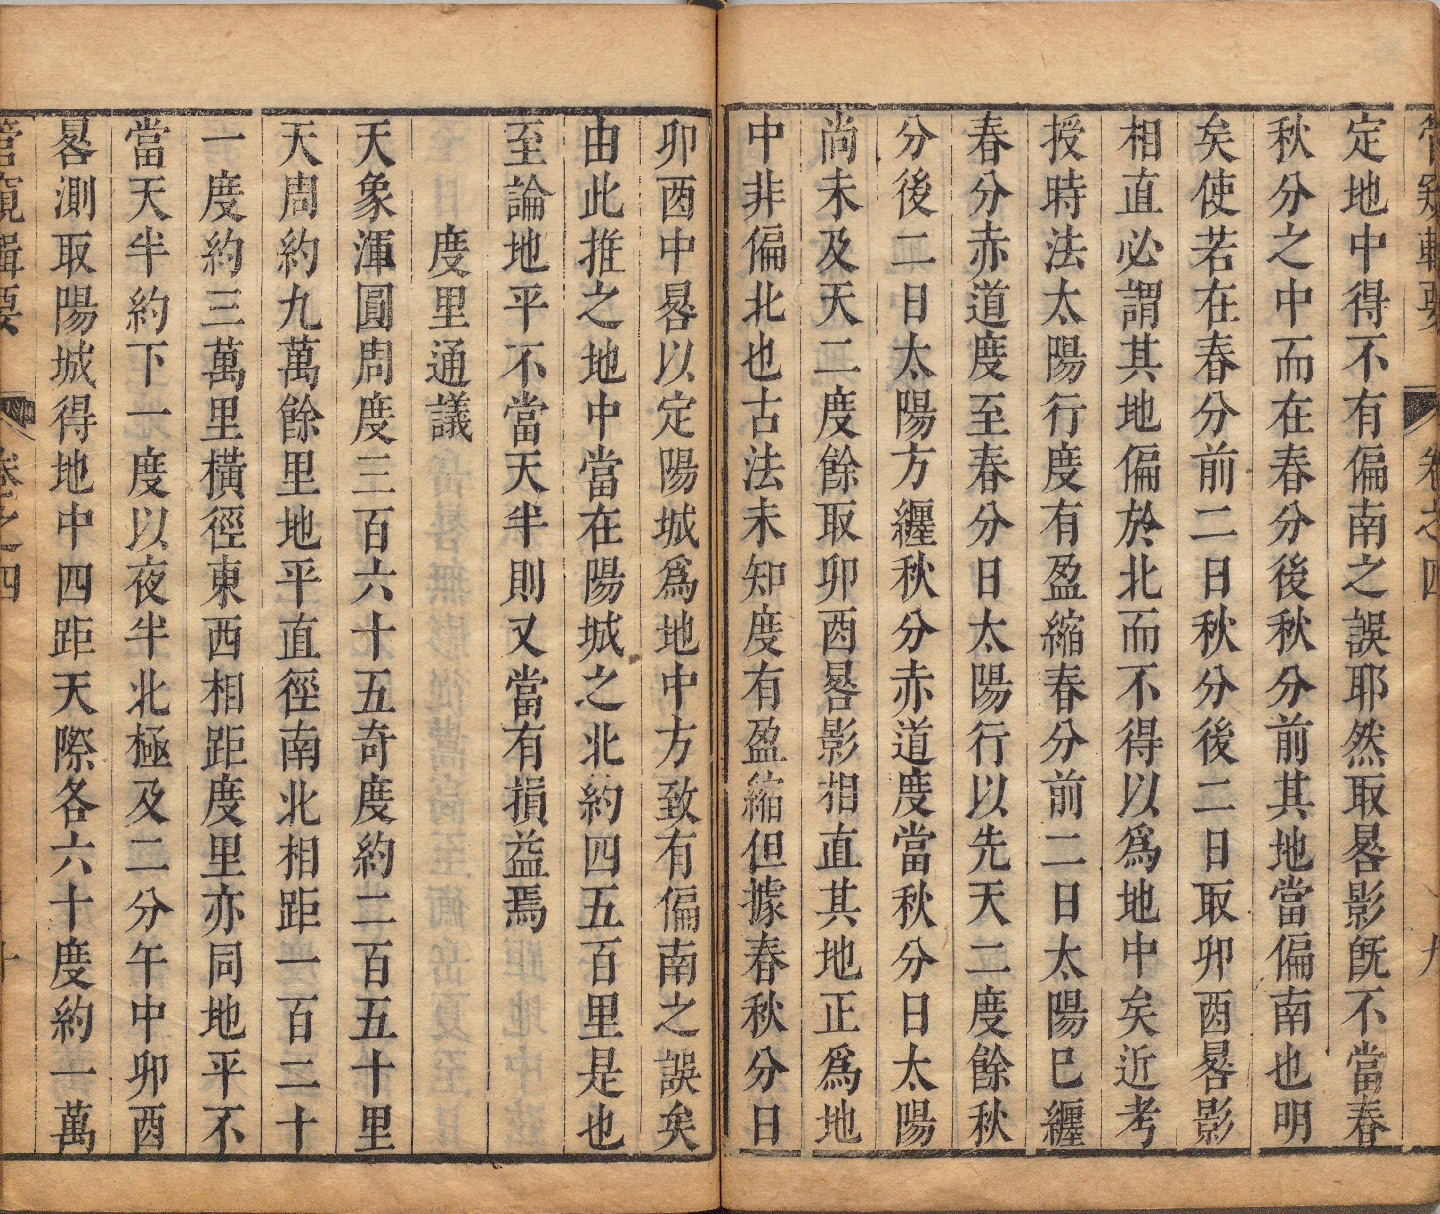 管窺輯要 卷之四 九
定地中得不有偏南之誤耶然取晷影旣不當春
秋分之中而在春分後秋分前其地當偏南也明
矣使若在春分前二日秋分後二日取卯酉晷影
相直必謂其地偏於北而不得以為地中矣近考
授時法太陽行度有盈縮春分前二日太陽已纏
春分赤道度至春分日太陽行以先天二度餘秋
分後二日太陽方纏秋分赤道度當秋分日太陽
尚未及天二度餘取卯酉晷影相直其地正為地
中非偏北也古法未知度有盈縮但據春秋分日
卯酉中晷以定陽城為地中方致有偏南之誤矣
由此推之地中當在陽城之北約四五百里是也
至論地平不當天半則又當有損益焉
度里通議
天象渾圓周度三百六十五奇度約二百五十里
天周約九萬餘里地平直徑南北相距一百二十
一度約三萬里橫徑東西相距度里亦同地平不
當天半約下一度以夜半北極及二分午中卯酉
晷測取陽城得地中四距天際各六十度約一萬
管窺輯要 卷之四 十